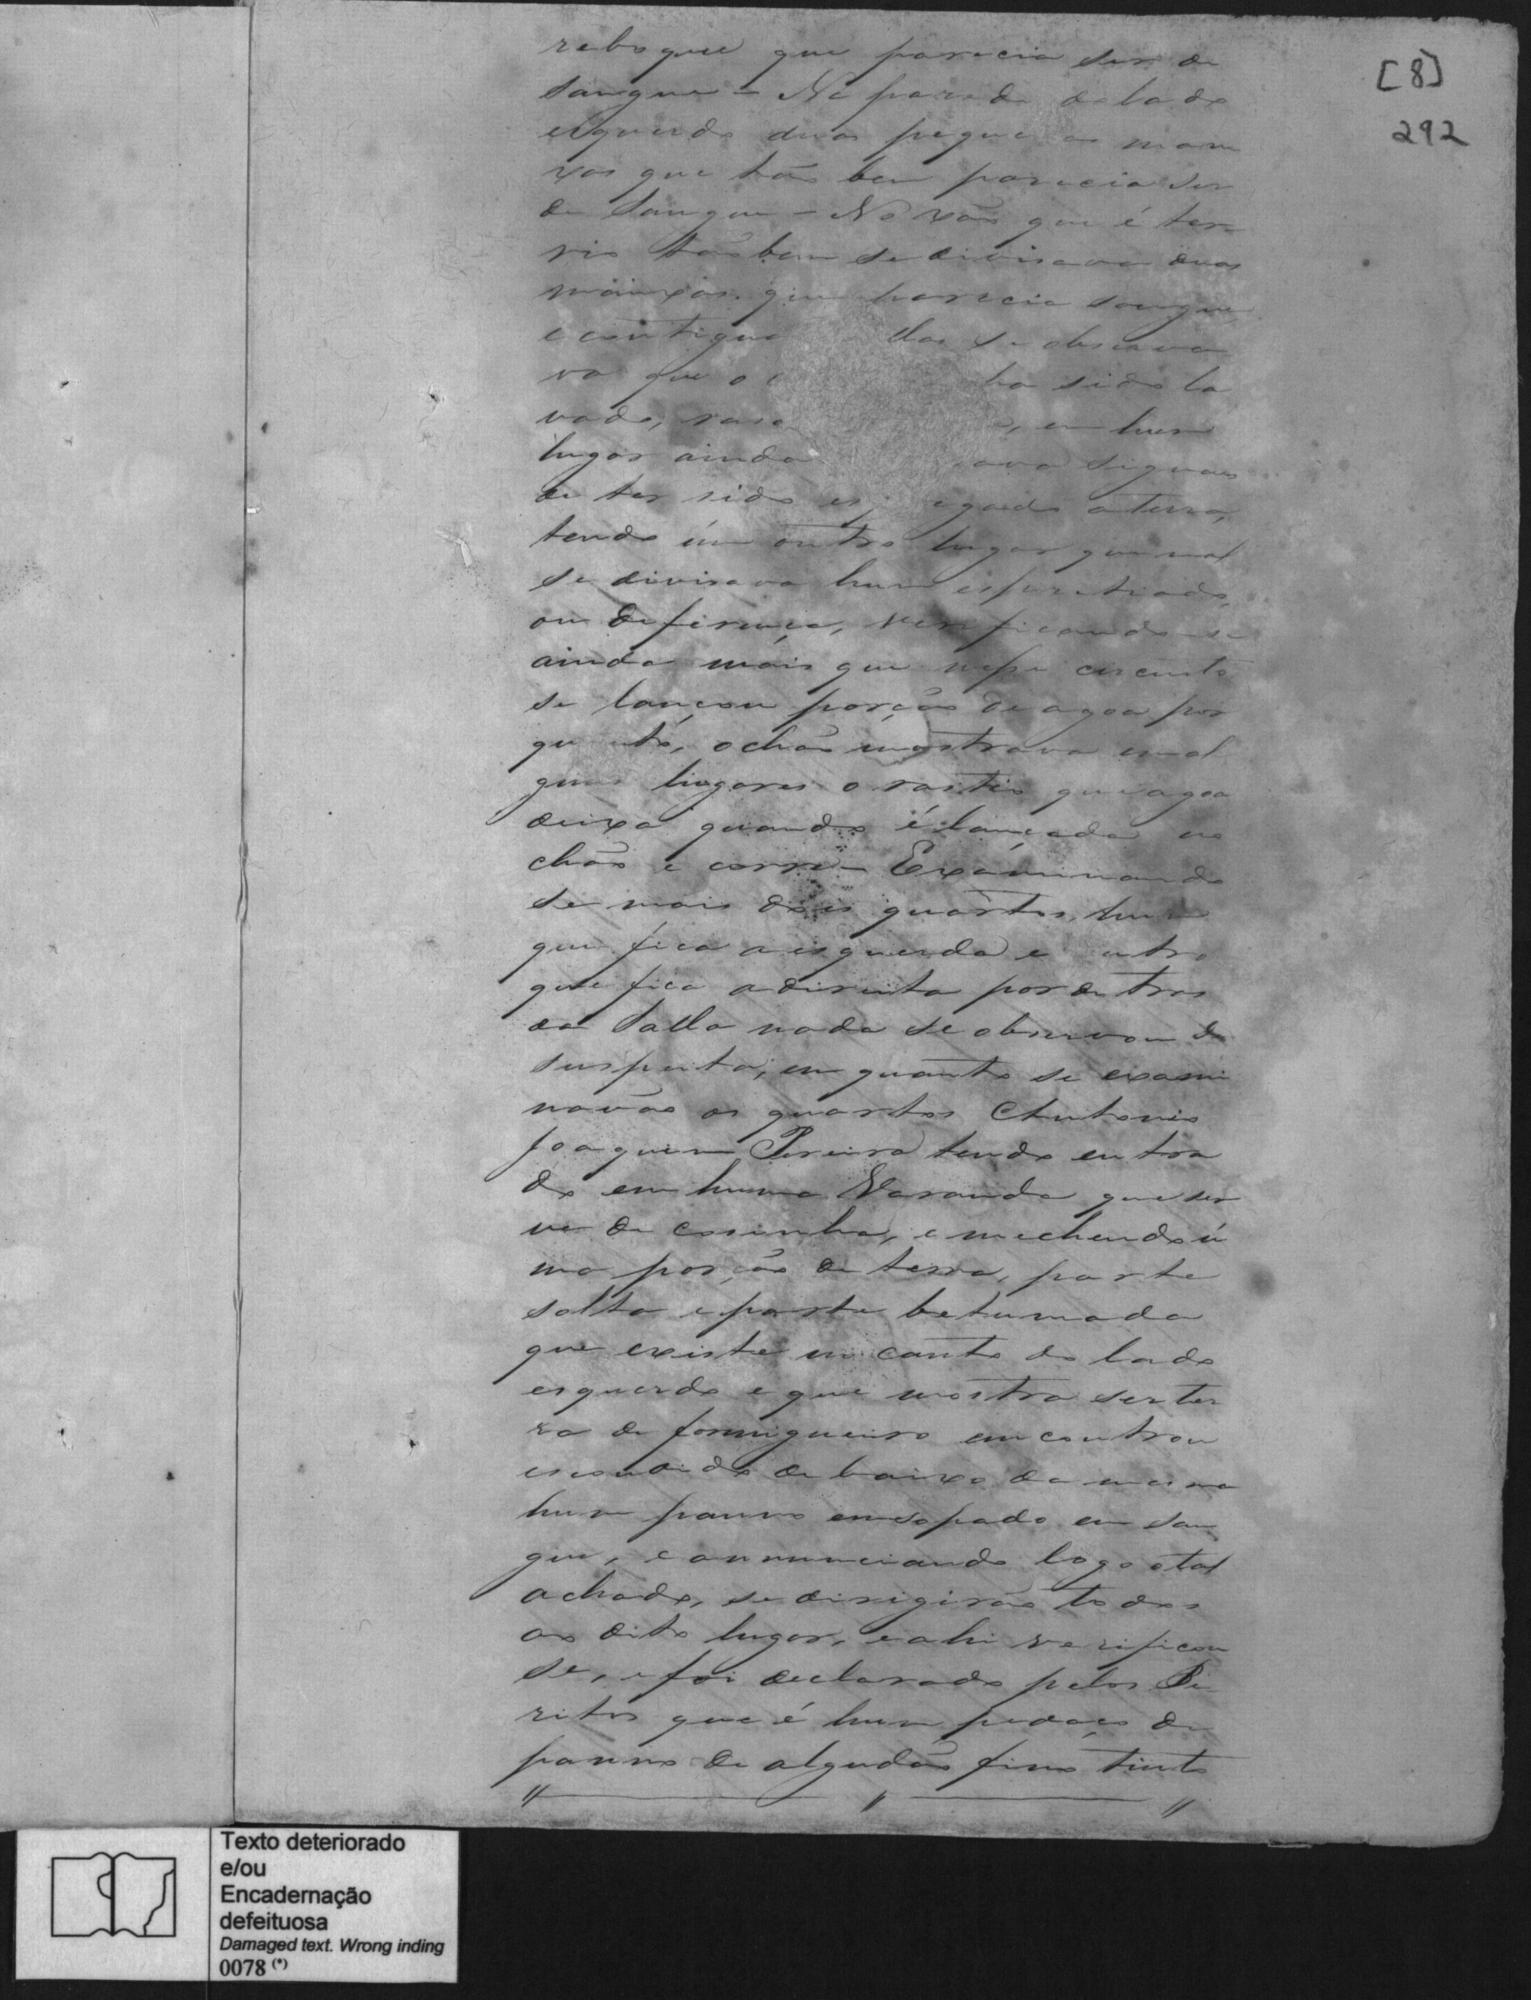 [8]
292
reboque que parecia ser de
sangue - Na parede do lado
esquerdo duas pequenas man
xas que tão bem parecia ser
de sangue - No xão que é ter
rio tão bem se divisava duas
manxas que parecia sangue,
e contigua das se observa
va que o ha sido la
vado, em hum
lugar ainda signaes
de ter sido a terra,
tendo úm outro lugar que mal
se divisava hum
ou deferença, verificando-se
ainda máis que nesse circuito
se lançou porção de agoa por
quanto, o chão mostrava em al
guns lugares o rasteo que agoa
deixa quando é lançada no
chão e corre - Examinando
se mais dois quartos, hum
que fica a esquerda e outro
que fica a direita por de tras
da Salla nada se observou de
suspeita; em quanto se exami
navão os quartos Antonio
Joaquim Pereira tendo entra
do em huma Varanda que ser
ve de cosinha, e mechendo ú
ma porção de terra, parte
solta e parte betumada
que existe no canto do lado
esquerdo e que mostra ser ter
ra de formigueiro encontrou
escondido de baixo da mesma
hum panno ensopado em san
gue, e annunciando logo o tal
achado, se dirigirão todos
ao dito lugar, e ahi verificou
se, e foi declarado pelos Pe
ritos que é hum pedaço de
panno de algudão fino tinto
" ——— " ——— "
Texto deteriorado
e/ou
Encadernação
defeituosa
Damaged text. Wrong inding
0078 (*)